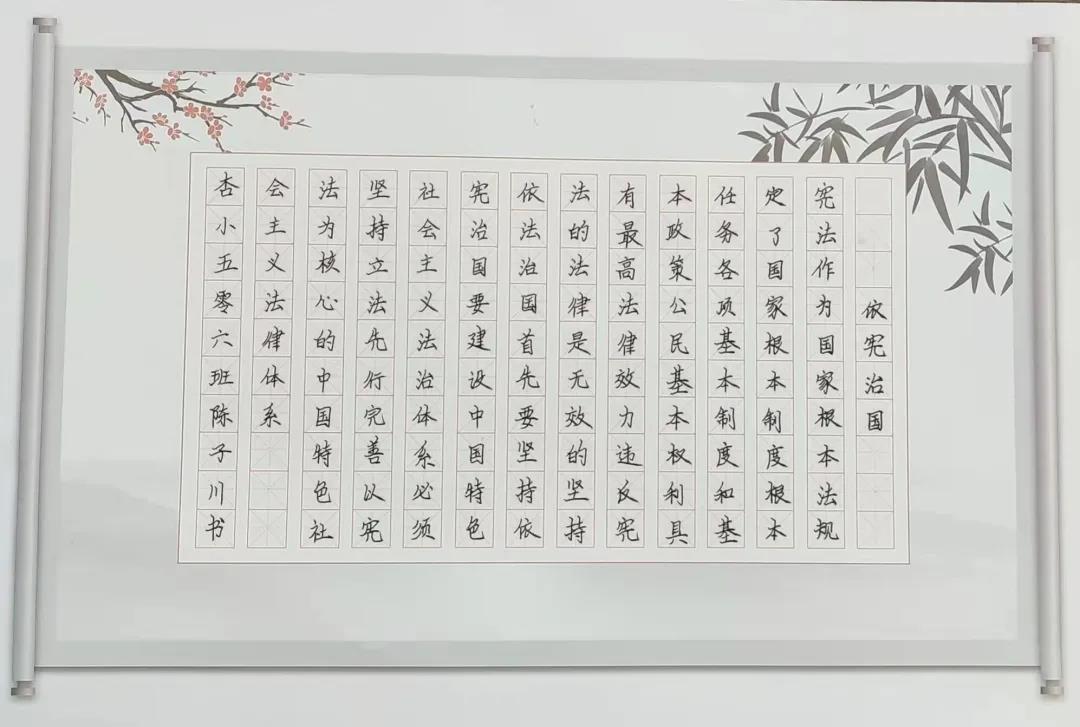 依宪治国
宪法作为国家根本法规
定了国家根本制度根本
任务各项基本制度和基
本政策公民基本权利具
有最高法律效力违反宪
法的法律是无效的坚持
依法治国首先要坚持依
宪治国要建设中国特色
社会主义法治体系必须
坚持立法先行完善以宪
法为核心的中国特色社
会主义法律体系
杏小五零六班陈子川书